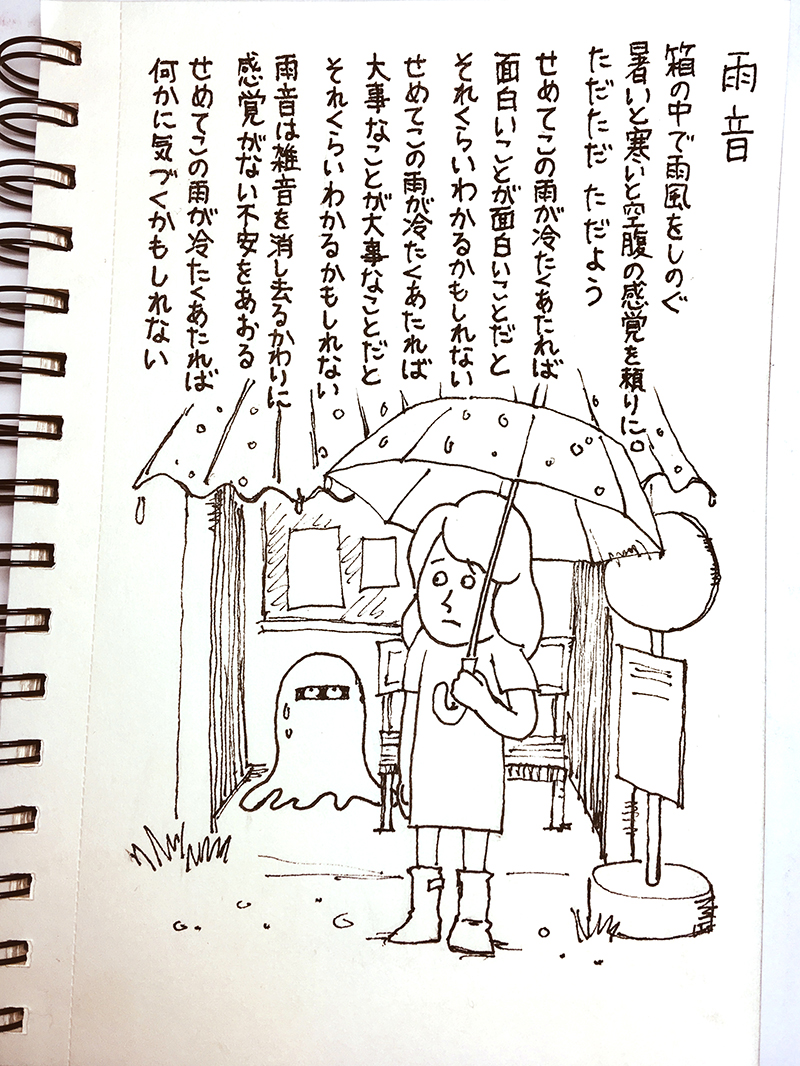 雨音
箱の中で雨風をしのぐ
暑いと寒いと空腹の感覚を頼りに。
ただただ ただよう
せめてこの雨が冷たくあたれば
面白いことが面白いことだと
それくらいわかるかもしれない
せめてこの雨が冷たくあたれば
大事なことが大事なことだと
それくらいわかるかもしれない
雨音は雑音を消し去るかわりに
感覚がない不安をあおる
せめてこの雨が冷たくあたれば
何かに気づくかもしれない